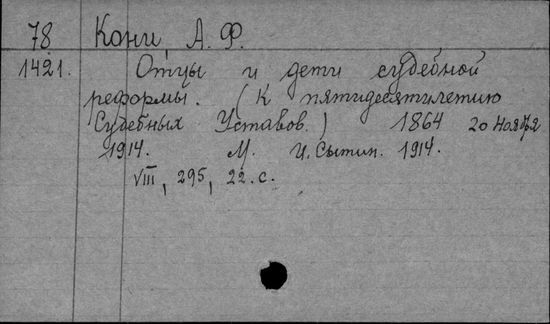 78 Кони А. Ф.
1421. Отцы и дети судебной
реформы. (К пятидесятилетию
Судебных Уставов.) 1864 20 Ноября
1914. М. И. Сытин. 1914.
VIII, 295, 22. с.